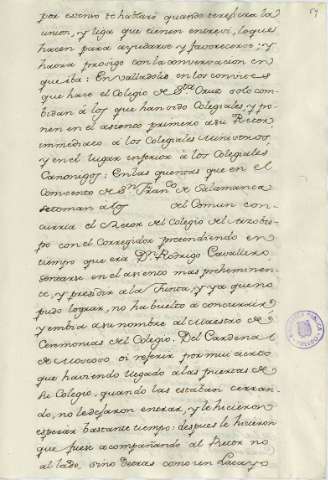 59
por extenso te hablaré quando te refiera la
union, y liga que tienen entre si, lo que
hacen para ayudarse y favorecerse: y
haora prosigo con la conversacion en
que iba: En Valladolid en los convites
que hace el Colegio de Sta Cruz solo com-
bidan á los que han sido Colegiales y po-
nen en el asiento primero a su Rector,
immediato á los Colegiales Ministros,
y en el lugar inferior á los Colegiales
Canonigos: En las quentas que en el
Comvento de Sn Franco de Salamanca
se toman a los del Comun con-
curria el Rector del Colegio del Arzobis-
po con el Corregidor pretendiendo en
tiempo que era Dn Rodrigo Cavallero
sentarse en el asiento mas preheminen-
te, y presidir a la Junta; y ya que no
pudo lograr, no ha buelto á concurrir
y embia a su nombre al Maestro de
Ceremonias del Colegio. Del Cardenal
de Moscoso oi referir por muy cierto
que haviendo llegado á las puertas de
su Colegio quando las estaban cerran-
do, no le dejaron entrar, y le hicieron
esperar bastante tiempo: despues le hicieron
que fuese acompañando al Rector no
al lado, sino detras como un Lacayo